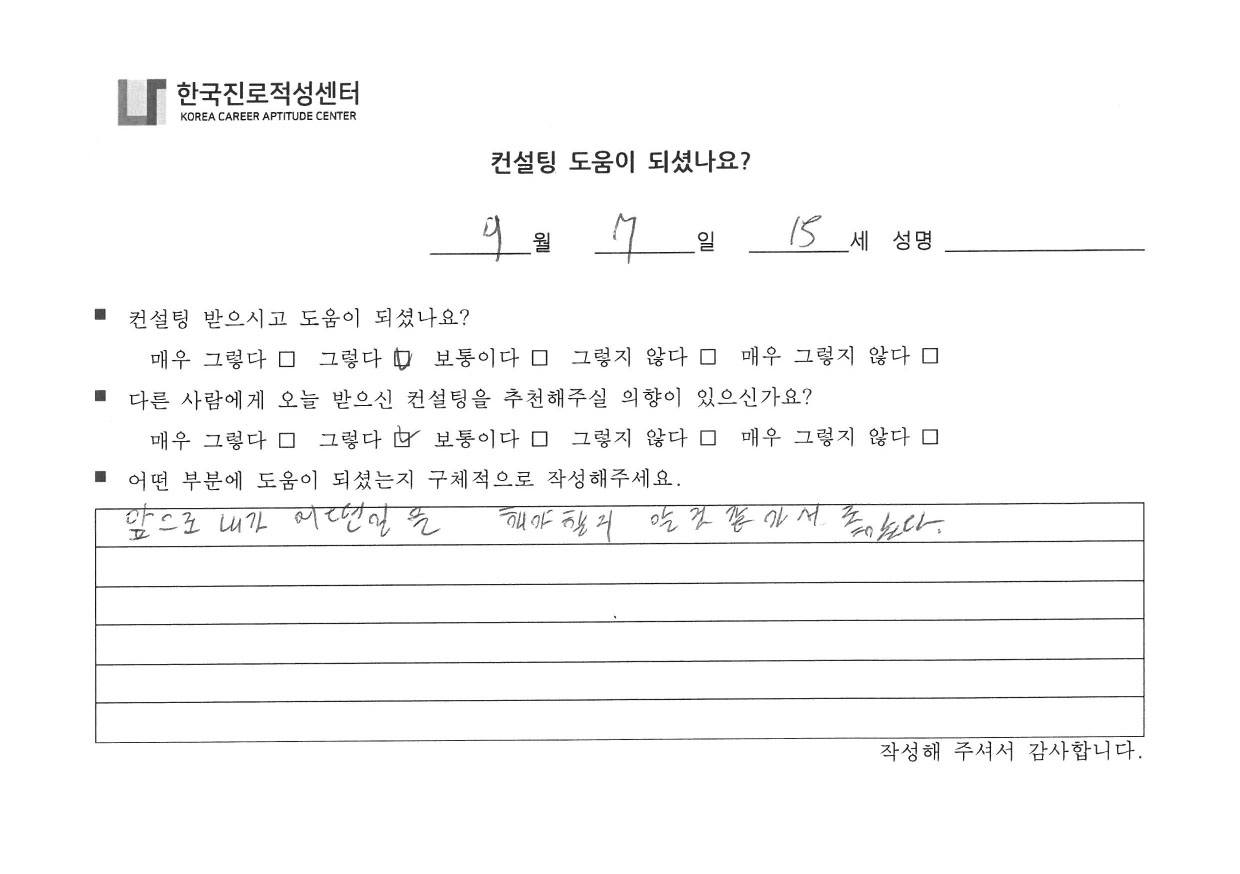 한국진로적성센터
KOREA CAREER APTITUDE CENTER
컨설팅 도움이 되셨나요?
9월 7일 15세 성명
■ 컨설팅 받으시고 도움이 되셨나요?
매우 그렇다 □ 그렇다 ☑ 보통이다 □ 그렇지 않다 □ 매우 그렇지 않다 □
■ 다른 사람에게 오늘 받으신 컨설팅을 추천해주실 의향이 있으신가요?
매우 그렇다 □ 그렇다 ☑ 보통이다 □ 그렇지 않다 □ 매우 그렇지 않다 □
■ 어떤 부분에 도움이 되셨는지 구체적으로 작성해주세요.
앞으로 내가 어떤일을 해야할지 알 것 같아서 좋았다.
작성해 주셔서 감사합니다.